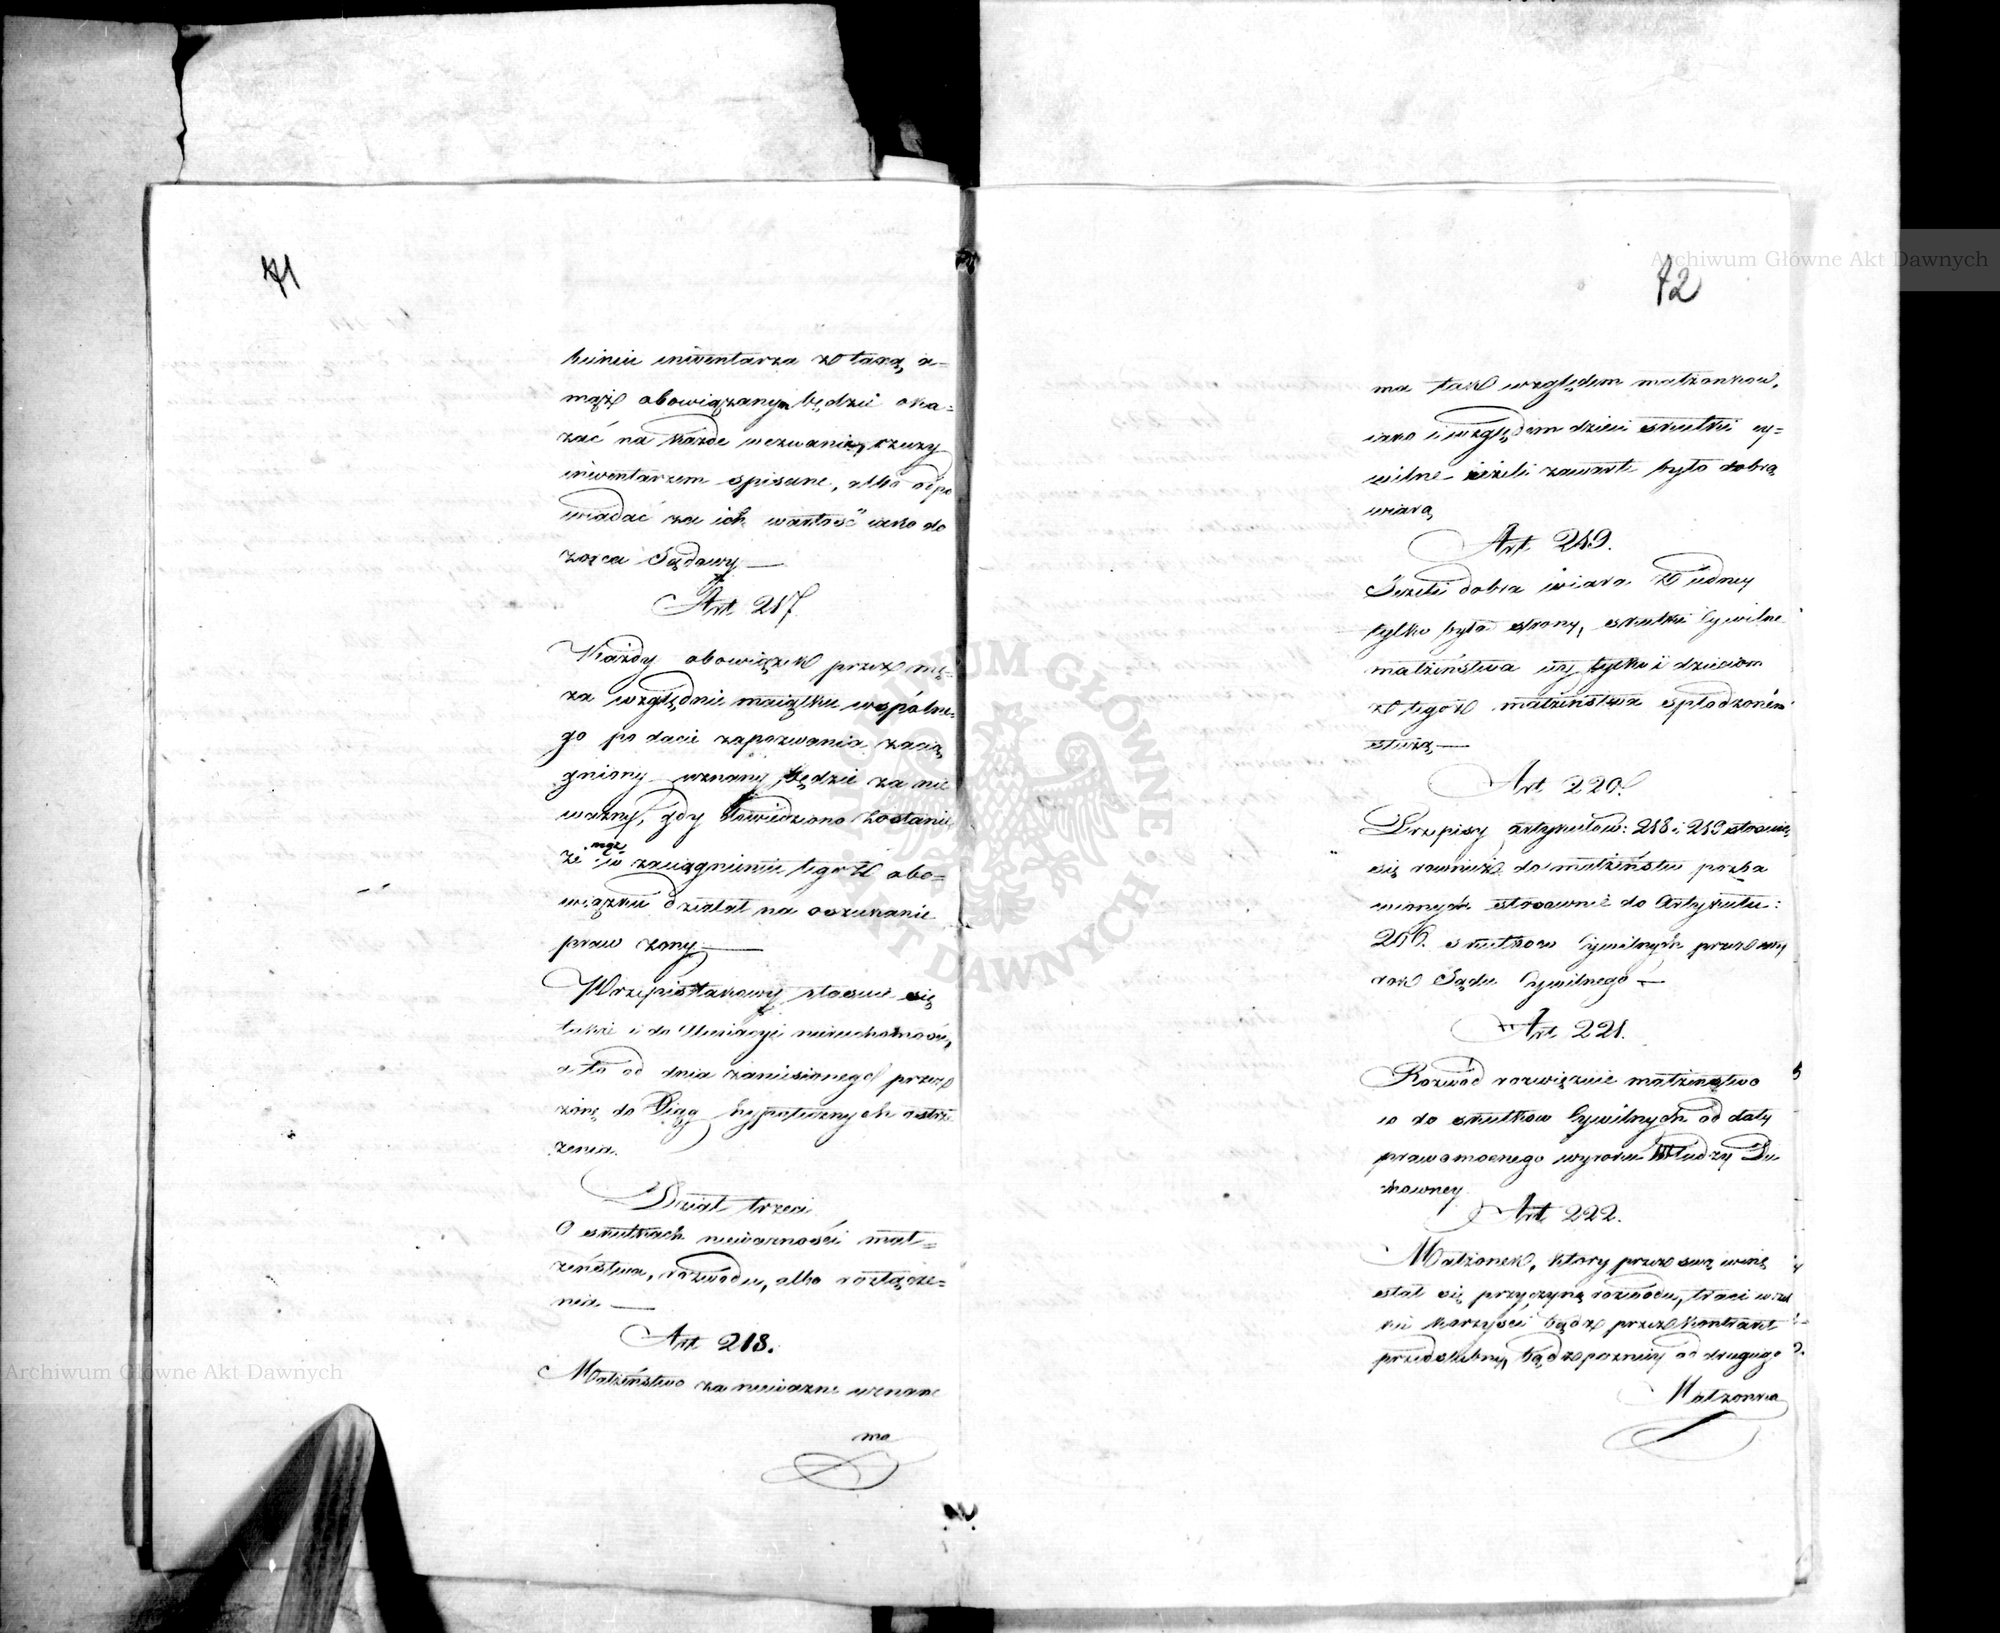 71
inwentarza z taxą, a-
mąż obowiązanym będzie oka-
zać na każde wezwanie, rzeczy
inwentarzem spisane, albo odpo
wiadać za ich wartość iako do
zorca Sądowy —
Art 217.
Każdy obowiązek przez mę-
ża względnie maiątku wspólne-
go po dacie zapozwania zacią
gniony uznany będzie za nie
ważny, gdy dowiedziono zostanie,
że mąż w zaciągnieniu tegoż obo-
wiązku działał na oszukanie
praw żony. —
Przepis takowy stosuie się
także i do Alienacyi nieruchomości,
a to od dnia zaniesionego przez
żonę do Xiąg hypotecznych ostrze
żenia.
Dział trzeci
O skutkach nieważności mał-
żeństwa, rozwodu, albo rozłącze-
nia —
Art 218.
Małżeństwo za nieważne uznane
ma
72
ma tak względem małżonków,
iako i względem dzieci skutki cy-
wilne ieżeli zawarte było dobrą
wiarą
Art 219.
Jeżeli dobra wiara z iedney
tylko była strony, skutki Cywilne
małżeństwa iey tylko i dzieciom
z tegoż małżeństwa spłodzonem
służą —
Art 220.
Przepisy artykułów: 218 i 219 stosuią
się również do małżeństw pozba
wionych stosownie do Artykułu:
206. skutków Cywilnych przez wy
rok Sądu Cywilnego —
Art 221.
Rozwód rozwiązuie małżeństwo
co do skutków Cywilnych od daty
prawomocnego wyroku Władzy Du
chowney
Art 222.
Małżonek, który przez swą winę
stał się przyczyną rozwodu, traci wszel
kie korzyści bądź przez kontrakt
przedślubny, bądź pozniey od drugiego
Małżonka
Archiwum Główne Akt Dawnych
Archiwum Główne Akt Dawnych
ARCHIWUM GŁÓWNE AKT DAWNYCH